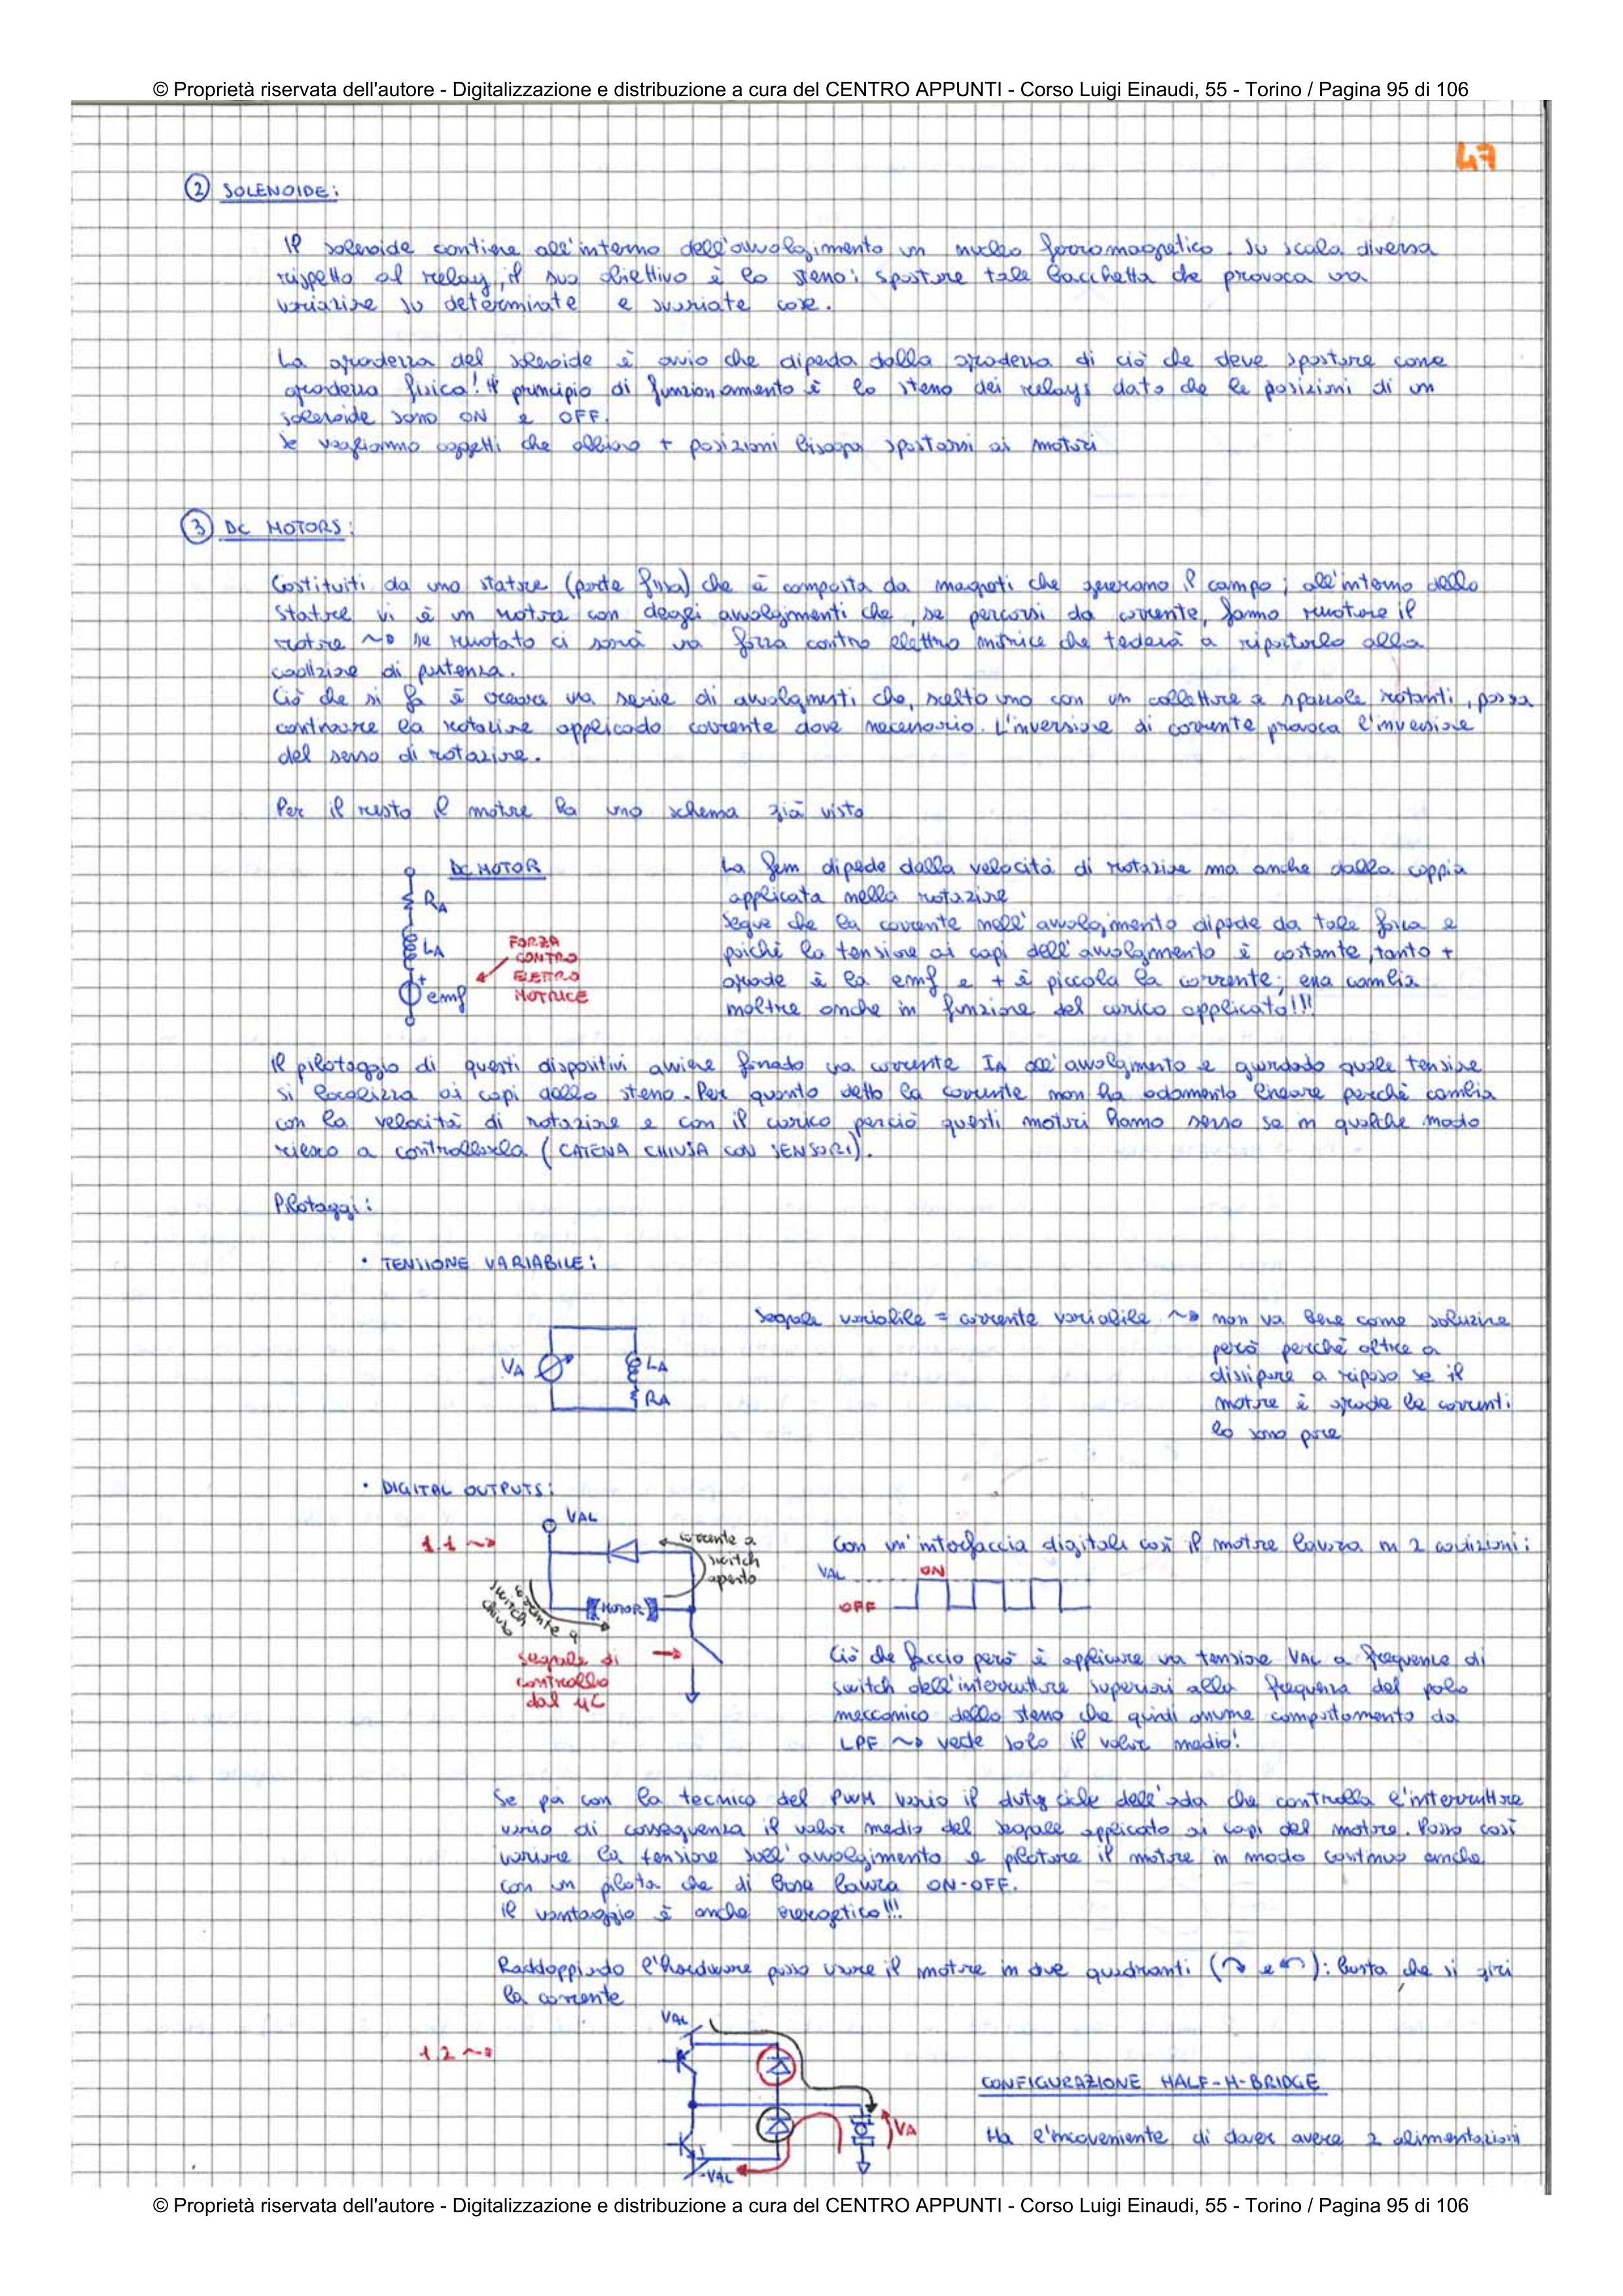 © Proprietà riservata dell'autore - Digitalizzazione e distribuzione a cura del CENTRO APPUNTI - Corso Luigi Einaudi, 55 - Torino / Pagina 95 di 106
47
② SOLENOIDE:
Il solenoide contiene all'interno dell'avvolgimento un nucleo ferromagnetico. Su scala diversa
rispetto al relay, il suo obiettivo è lo stesso: spostare tale bacchetta che provoca una
variazione su determinate e svariate cose.
La grandezza del solenoide è ovvio che dipenda dalla grandezza di ciò che deve spostare come
grandezza fisica! Il principio di funzionamento è lo stesso dei relays dato che le posizioni di un
solenoide sono ON e OFF.
Se vogliamo oggetti che abbiano + posizioni bisogna spostarsi ai motori
③ DC MOTORS:
Costituiti da uno statore (parte fissa) che è composta da magneti che generano il campo; all'interno dello
statore vi è un rotore con degli avvolgimenti che, se percorsi da corrente, fanno ruotare il
rotore ~> se ruotato ci sarà una forza contro elettro motrice che tenderà a riportarlo alla
condizione di partenza.
Ciò che si fa è creare una serie di avvolgimenti che, scelto uno con un collettore a spazzole rotanti, possa
continuare la rotazione applicando corrente dove necessario. L'inversione di corrente provoca l'inversione
del senso di rotazione.
Per il resto il motore ha uno schema già visto
DC MOTOR
RA
LA
+
emf
FORZA
CONTRO
ELETTRO
MOTRICE
La fem dipende dalla velocità di rotazione ma anche dalla coppia
applicata nella rotazione
Segue che la corrente nell'avvolgimento dipende da tale forza e
poiché la tensione ai capi dell'avvolgimento è costante, tanto +
grande è la emf e + è piccola la corrente; essa cambia
inoltre anche in funzione del carico applicato!!!
Il pilotaggio di questi dispositivi avviene fissando una corrente IA all'avvolgimento e guardando quale tensione
si localizza ai capi dello stesso. Per quanto detto la corrente non ha andamento lineare perchè cambia
con la velocità di rotazione e con il carico perciò questi motori hanno senso se in qualche modo
riesco a controllarla (CATENA CHIUSA CON SENSORI).
Pilotaggi:
• TENSIONE VARIABILE:
VA
LA
RA
Segnale variabile = corrente variabile ~> non va bene come soluzione
però perché oltre a
dissipare a riposo se il
motore è grande le correnti
lo sono pure
• DIGITAL OUTPUTS:
1.1 ~>
VAL
corrente a
switch
aperto
MOTOR
corrente a
switch
chiuso
segnale di
controllo
dal μC
Con un'interfaccia digitale così il motore lavora in 2 condizioni:
VAL
ON
OFF
Ciò che faccio però è applicare una tensione VAL a frequenze di
switch dell'interruttore superiori alla frequenza del polo
meccanico dello stesso che quindi assume comportamento da
LPF ~> vede solo il valor medio!
Se poi con la tecnica del PWM vario il duty cicle dell'onda che controlla l'interruttore
vario di conseguenza il valor medio del segnale applicato ai capi del motore. Posso così
variare la tensione sull'avvolgimento e pilotare il motore in modo continuo anche
con un pilota che di base lavora ON-OFF.
Il vantaggio è anche energetico!!!
Raddoppiando l'hardware posso usare il motore in due quadranti (↷ e ↶): basta che si giri
la corrente
1.2 ~>
VAL
VA
-VAL
CONFIGURAZIONE HALF-H-BRIDGE
Ha l'inconveniente di dover avere 2 alimentazioni
© Proprietà riservata dell'autore - Digitalizzazione e distribuzione a cura del CENTRO APPUNTI - Corso Luigi Einaudi, 55 - Torino / Pagina 95 di 106